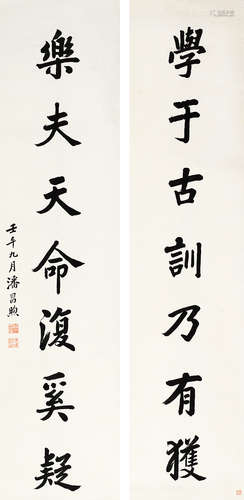 學于古訓乃有獲
樂夫天命復奚疑
壬午九月潘昌煦